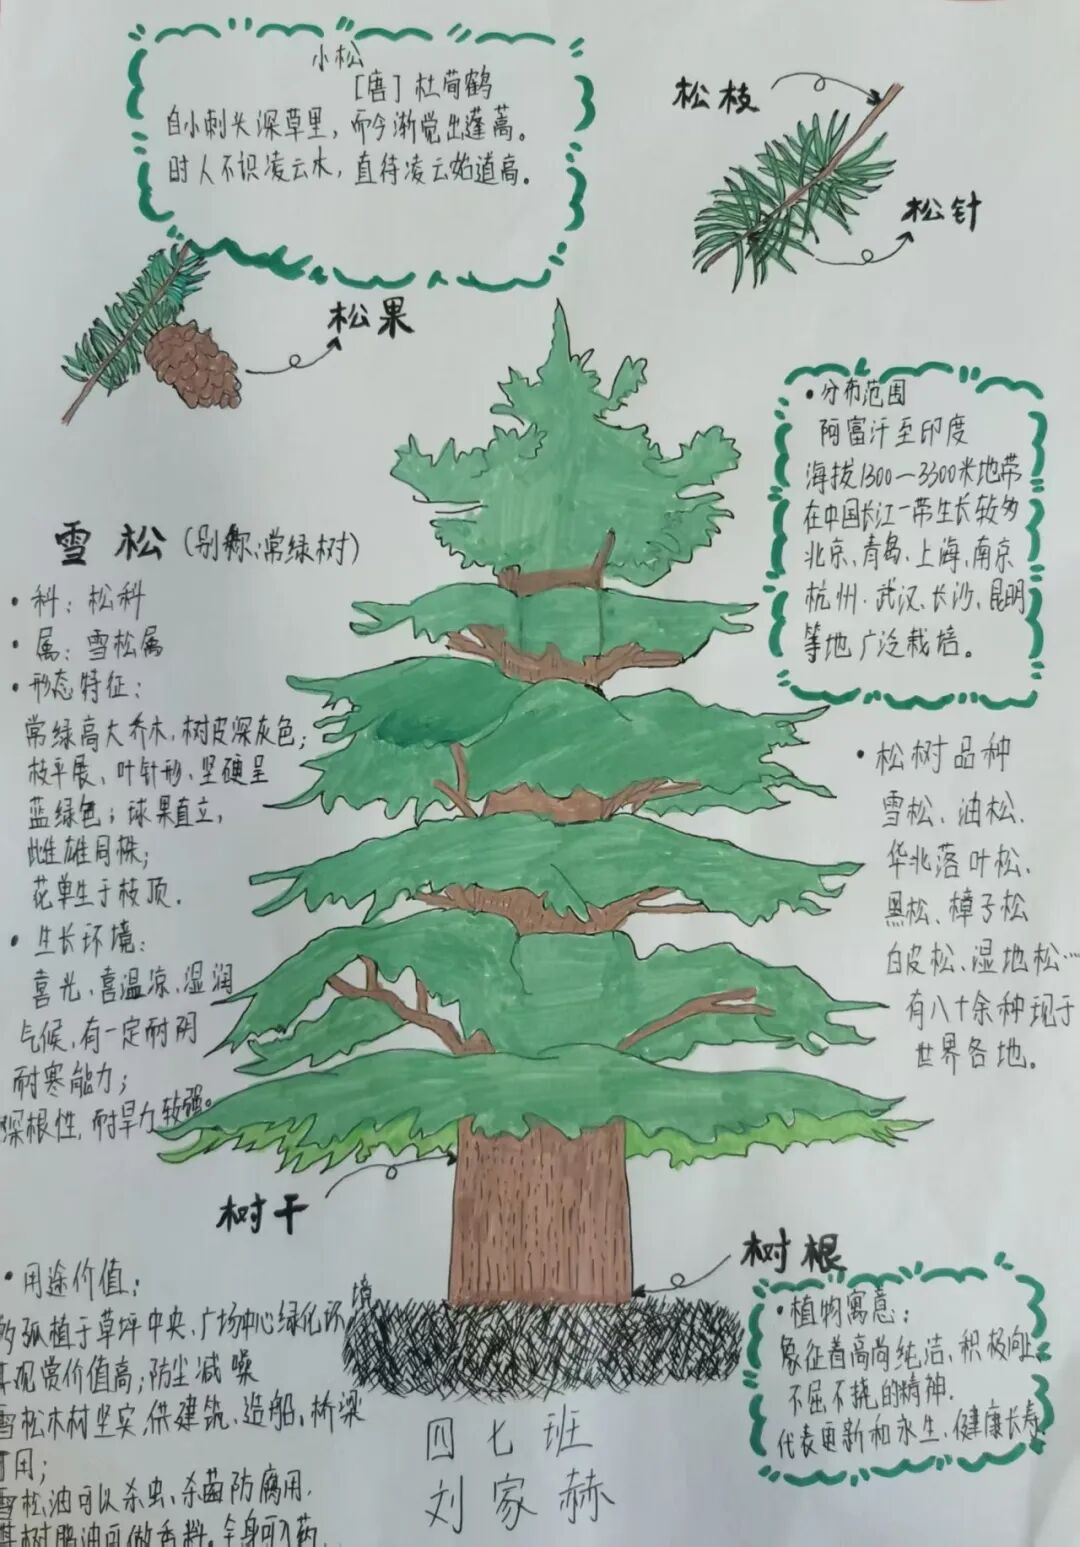 小松
[唐] 杜荀鹤
自小刺头深草里，而今渐觉出蓬蒿。
时人不识凌云木，直待凌云始道高。
松枝
松针
松果
·分布范围
阿富汗至印度
海拔1300—3300米地带
在中国长江一带生长较多
北京、青岛、上海、南京
杭州·武汉、长沙、昆明
等地广泛栽培。
雪松(别称:常绿树)
·科：松科
·属：雪松属
·形态特征：
常绿高大乔木，树皮深灰色；
枝平展、叶针形、坚硬呈
蓝绿色；球果直立，
雌雄同株；
花单生于枝顶.
·生长环境：
喜光、喜温凉、湿润
气候、有一定耐阴
耐寒能力；
深根性，耐旱力较强。
·松树品种
雪松、油松、
华北落叶松、
黑松、樟子松
白皮松、湿地松…
有八十余种现于
世界各地。
树干
树根
·用途价值：
多孤植于草坪中央、广场中心绿化环境
其观赏价值高；防尘减噪
雪松木材坚实，供建筑、造船、桥梁
可用；
雪松油可以杀虫、杀菌防腐用.
其树脂油可做香料。全身可入药.
·植物寓意：
象征着高尚纯洁、积极向上、
不屈不挠的精神.
代表更新和永生、健康长寿
四七班
刘家赫